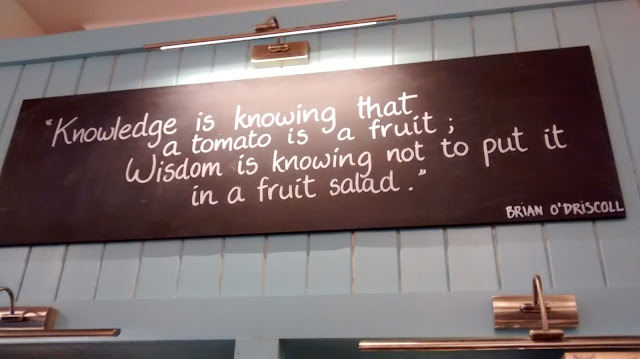 "Knowledge is knowing that
a tomato is a fruit;
Wisdom is knowing not to put it
in a fruit salad."
BRIAN O'DRISCOLL